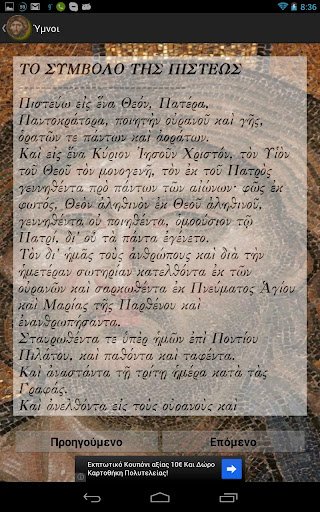 8:36
Ύμνοι
ΤΟ ΣΥΜΒΟΛΟ ΤΗΣ ΠΙΣΤΕΩΣ
Πιστεύω εἰς ἕνα Θεόν, Πατέρα,
Παντοκράτορα, ποιητὴν οὐρανοῦ καὶ γῆς,
ὁρατῶν τε πάντων καὶ ἀοράτων.
Καὶ εἰς ἕνα Κύριον Ἰησοῦν Χριστόν, τὸν Υἱὸν
τοῦ Θεοῦ τὸν μονογενῆ, τὸν ἐκ τοῦ Πατρὸς
γεννηθέντα πρὸ πάντων τῶν αἰώνων· φῶς ἐκ
φωτός, Θεὸν ἀληθινὸν ἐκ Θεοῦ ἀληθινοῦ,
γεννηθέντα οὐ ποιηθέντα, ὁμοούσιον τῷ
Πατρί, δι' οὗ τὰ πάντα ἐγένετο.
Τὸν δι' ἡμᾶς τοὺς ἀνθρώπους καὶ διὰ τὴν
ἡμετέραν σωτηρίαν κατελθόντα ἐκ τῶν
οὐρανῶν καὶ σαρκωθέντα ἐκ Πνεύματος Ἁγίου
καὶ Μαρίας τῆς Παρθένου καὶ
ἐνανθρωπήσαντα.
Σταυρωθέντα τε ὑπὲρ ἡμῶν ἐπὶ Ποντίου
Πιλάτου, καὶ παθόντα καὶ ταφέντα.
Καὶ ἀναστάντα τῇ τρίτῃ ἡμέρα κατὰ τὰς
Γραφάς.
Καὶ ἀνελθόντα εἰς τοὺς οὐρανοὺς καὶ
Προηγούμενο
Επόμενο
Εκπτωτικό Κουπόνι αξίας 10€ Και Δώρο
Καρτοθήκη Πολυτελείας!